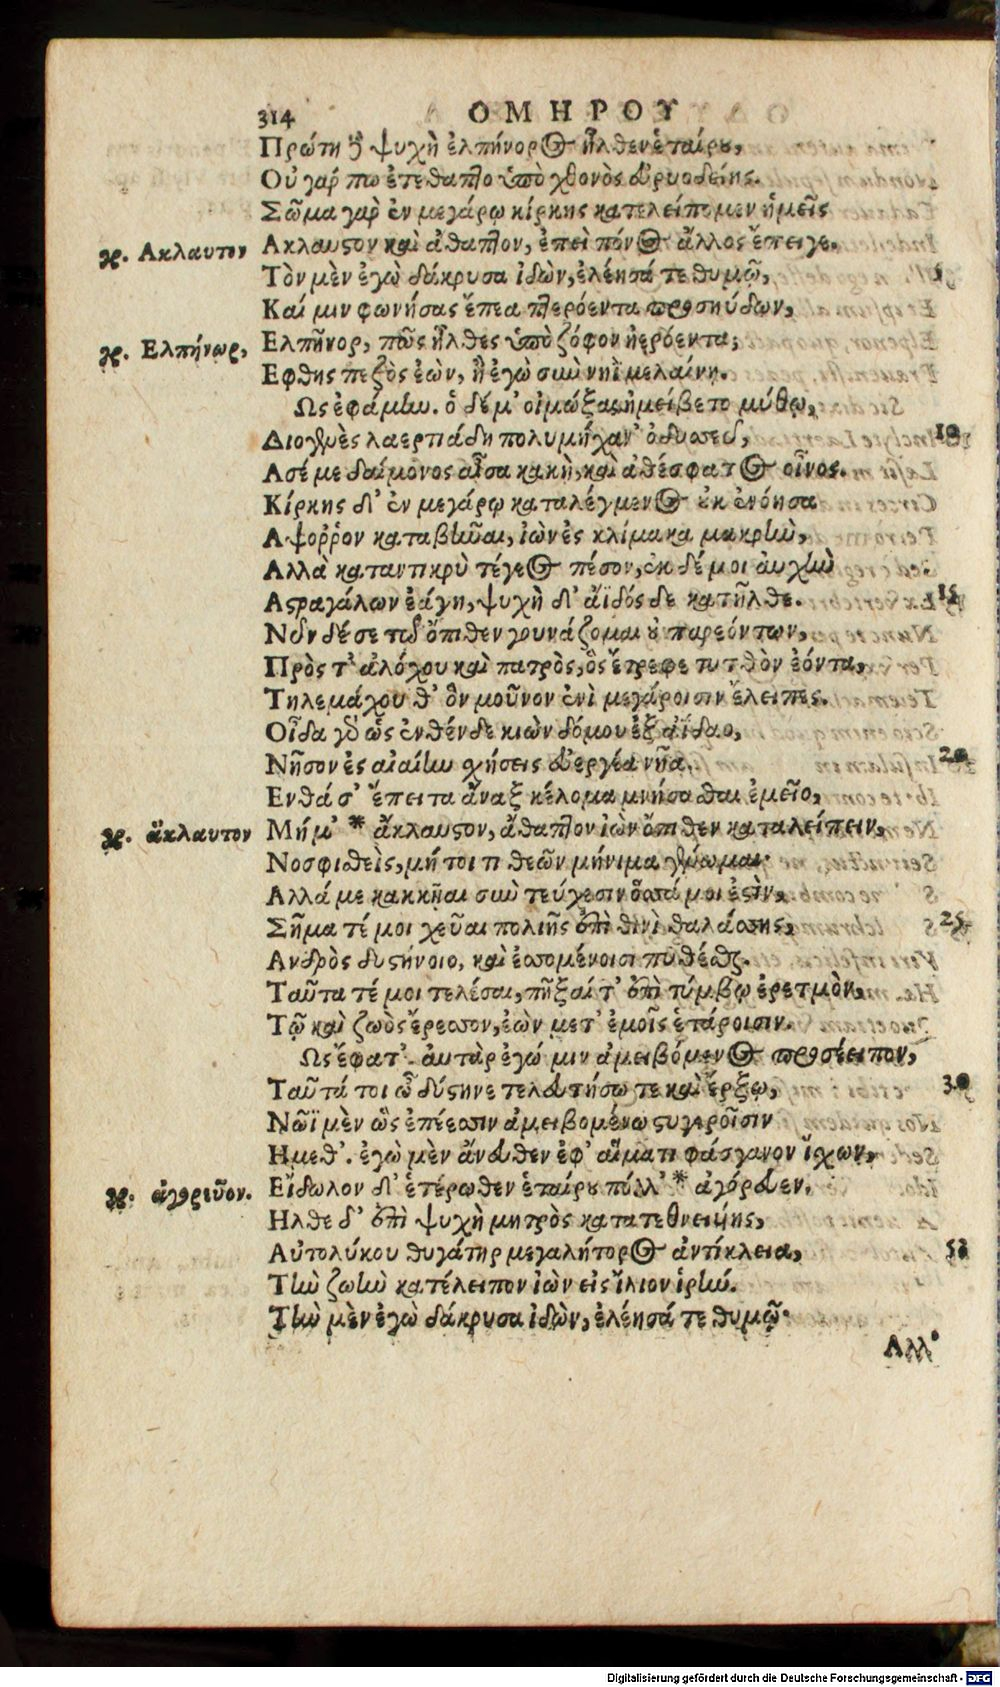 314 ΟΜΗΡΟΥ
Πρώτη δὲ ψυχὴ ἐλπήνορος ἦλθεν ἑταίρου,
Οὐ γάρ πω ἐτέθαπτο ὑπὸ χθονὸς εὐρυοδείης.
Σῶμα γὰρ ἐν μεγάρῳ κίρκης κατελείπομεν ἡμεῖς
γρ. Ακλαυτον Ακλαυστον καὶ ἄθαπτον, ἐπεὶ πόνος ἄλλος ἔπειγε.
Τὸν μὲν ἐγὼ δάκρυσα ἰδὼν, ἐλέησά τε θυμῷ,
Καί μιν φωνήσας ἔπεα πτερόεντα προσηύδων,
γρ. Ελπήνωρ, Ελπῆνορ, πῶς ἦλθες ὑπὸ ζόφον ἠερόεντα;
Εφθης πεζὸς ἐὼν, ἢ ἐγὼ σὺν νηῒ μελαίνῃ.
Ως ἐφάμην. ὁ δέ μ' οἰμώξας ἠμείβετο μύθῳ,
Διογενὲς λαερτιάδη πολυμήχαν' ὀδυσσεῦ, 10
Ασέ με δαίμονος αἶσα κακὴ, καὶ ἀθέσφατος οἶνος.
Κίρκης δ' ἐν μεγάρῳ καταλέγμενος οὐκ ἐνόησα
Αψοῤῥον καταβῆναι, ἰὼν ἐς κλίμακα μακρὴν,
Αλλὰ καταντικρὺ τέγεος πέσον, ἐκ δέ μοι αὐχὴν
Αστραγάλων ἐάγη, ψυχὴ δ' ἄϊδός δε κατῆλθε. 15
Νῦν δέ σε τῶν ὄπιθεν γουνάζομαι οὐ παρεόντων,
Πρός τ' ἀλόχου καὶ πατρὸς, ὅς ἔτρεφε τυτθὸν ἐόντα,
Τηλεμάχου θ' ὃν μοῦνον ἐνὶ μεγάροισιν ἔλειπες.
Οἶδα γὰρ ὡς ἐνθένδε κιὼν δόμου ἐξ ἀΐδαο,
Νῆσον ἐς αἰαίην σχήσεις εὐεργέα νῆα. 20
Ενθά σ' ἔπειτα ἄναξ κέλομαι μνήσασθαι ἐμεῖο,
γρ. ἄκλαυτον Μή μ' * ἄκλαυστον, ἄθαπτον ἰὼν ὄπιθεν καταλείπειν,
Νοσφισθεὶς, μή τοι τι θεῶν μήνιμα γένωμαι·
Αλλά με κακκῆαι σὺν τεύχεσιν ὅσσα μοι ἐστὶν,
Σῆμα τέ μοι χεῦαι πολιῆς ἐπὶ θινὶ θαλάσσης, 25
Ανδρὸς δυστήνοιο, καὶ ἐσσομένοισι πυθέσθαι.
Ταῦτα τέ μοι τελέσαι, πῆξαί τ' ἐπὶ τύμβῳ ἐρετμὸν,
Τῷ καὶ ζωὸς ἔρεσσον, ἐὼν μετ' ἐμοῖς ἑτάροισιν.
Ως ἔφατ'. αὐτὰρ ἐγώ μιν ἀμειβόμενος προσέειπον,
Ταῦτά τοι ὦ δύστηνε τελευτήσω τε καὶ ἔρξω, 30
Νῶϊ μὲν ὣς ἐπέεσσιν ἀμειβομένω στυγεροῖσιν
Ημεθ'. ἐγὼ μὲν ἄνευθεν ἐφ' αἵματι φάσγανον ἴσχων,
γρ. ἀγόρευον. Εἴδωλον δ' ἑτέρωθεν ἑταίρου πόλλ' * ἀγόρευεν.
Ηλθε δ' ἐπὶ ψυχὴ μητρὸς κατατεθνειύης,
Αὐτολύκου θυγάτηρ μεγαλήτορος ἀντίκλεια,
Τὴν ζωὴν κατέλειπον ἰὼν εἰς ἴλιον ἱρήν.
Τὴν μὲν ἐγὼ δάκρυσα ἰδὼν, ἐλέησά τε θυμῷ·
Αλλ'
Digitalisierung gefördert durch die Deutsche Forschungsgemeinschaft - DFG